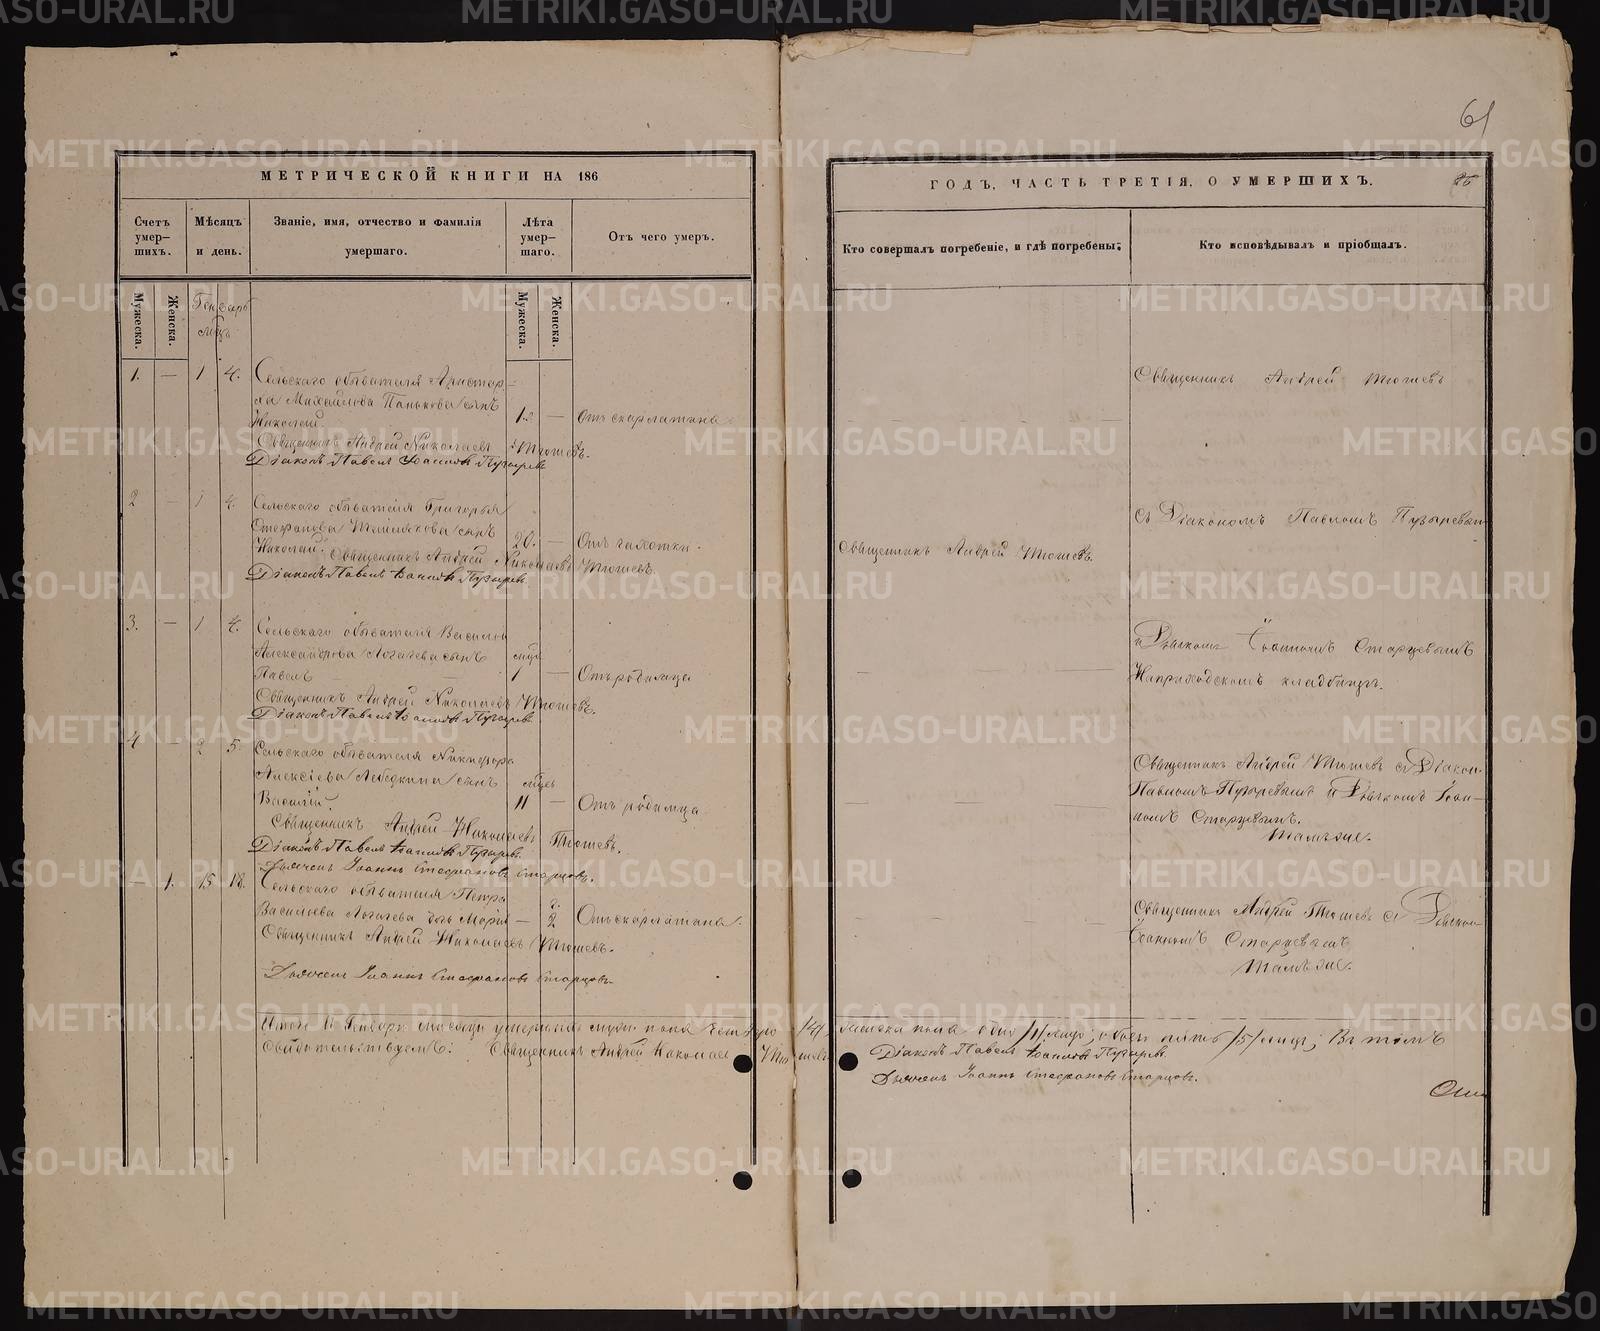 61
МЕТРИЧЕСКОЙ КНИГИ НА 186
Счетъ умер- шихъ.
Мѣсяцъ и день.
Званіе, имя, отчество и фамилія умершаго.
Лѣта умер- шаго.
Отъ чего умеръ.
Мужеска.
Женска.
Генварь
мцъ
Мужеска.
Женска.
1. — 1 4. Сельскаго обывателя Аристар-
ха Михайлова Панькова сынъ
Николай. — Отъ скарлатина
Священникъ Андрей Николаевъ Тюшевъ.
Діаконъ Павелъ Іоанновъ Пузыревъ
2 — 1 4. Сельскаго обывателя Григорья
Стефанова сынъ
Николай. 20. — Отъ чахотки.
Священникъ Андрей Николаевъ Тюшевъ.
Діаконъ Павелъ Іоанновъ Пузыревъ
3. — 1 4. Сельскаго обывателя Василья
Александрова Логачева сынъ
Павелъ — Отъ родимца
Священникъ Андрей Николаевъ Тюшевъ.
Діаконъ Павелъ Іоанновъ Пузыревъ
4 — 2 5. Сельскаго обывателя Никифора
Алексіева Лебедкина сынъ
Василій. 11 — Отъ родимца
Священникъ Андрей Николаевъ Тюшевъ.
Діаконъ Павелъ Іоанновъ Пузыревъ
Дьячекъ Іоаннъ Стефановъ Старцовъ.
— 1. 15 18. Сельскаго обывателя Петра
Васильева Логачева дочь Марія — 2 Отъ скарлатина.
Священникъ Андрей Николаевъ Тюшевъ.
Дьячекъ Іоаннъ Стефановъ Старцовъ.
Итого въ Генварѣ месяцѣ умершихъ муж. пола четыре /4/
Свидетельствуемъ: Священникъ Андрей Николаевъ Тюшевъ
ГОДЪ, ЧАСТЬ ТРЕТІЯ, О УМЕРШИХЪ.
Кто совершалъ погребеніе, и гдѣ погребены;
Кто исповѣдывалъ и пріобщалъ.
Священникъ Андрей Тюшевъ
съ Діакономъ Павломъ Пузыревым
Священникъ Андрей Тюшевъ.
и Дьячкомъ Іоанномъ Старцевымъ
На приходскомъ кладбищѣ.
Священникъ Андрей Тюшевъ съ Діакон.
Павломъ Пузыревымъ и Дьячкомъ Іоан-
номъ Старцевымъ.
Тамъ же.
Священникъ Андрей Тюшевъ съ Дьячком
Іоанномъ Старцевымъ
Тамъ же.
женска пола одно /1/ обоего пять /5/ Въ томъ
Діаконъ Павелъ Іоанновъ Пузыревъ.
Дьячекъ Іоаннъ Стефановъ Старцовъ.
METRIKI.GASO-URAL.RU